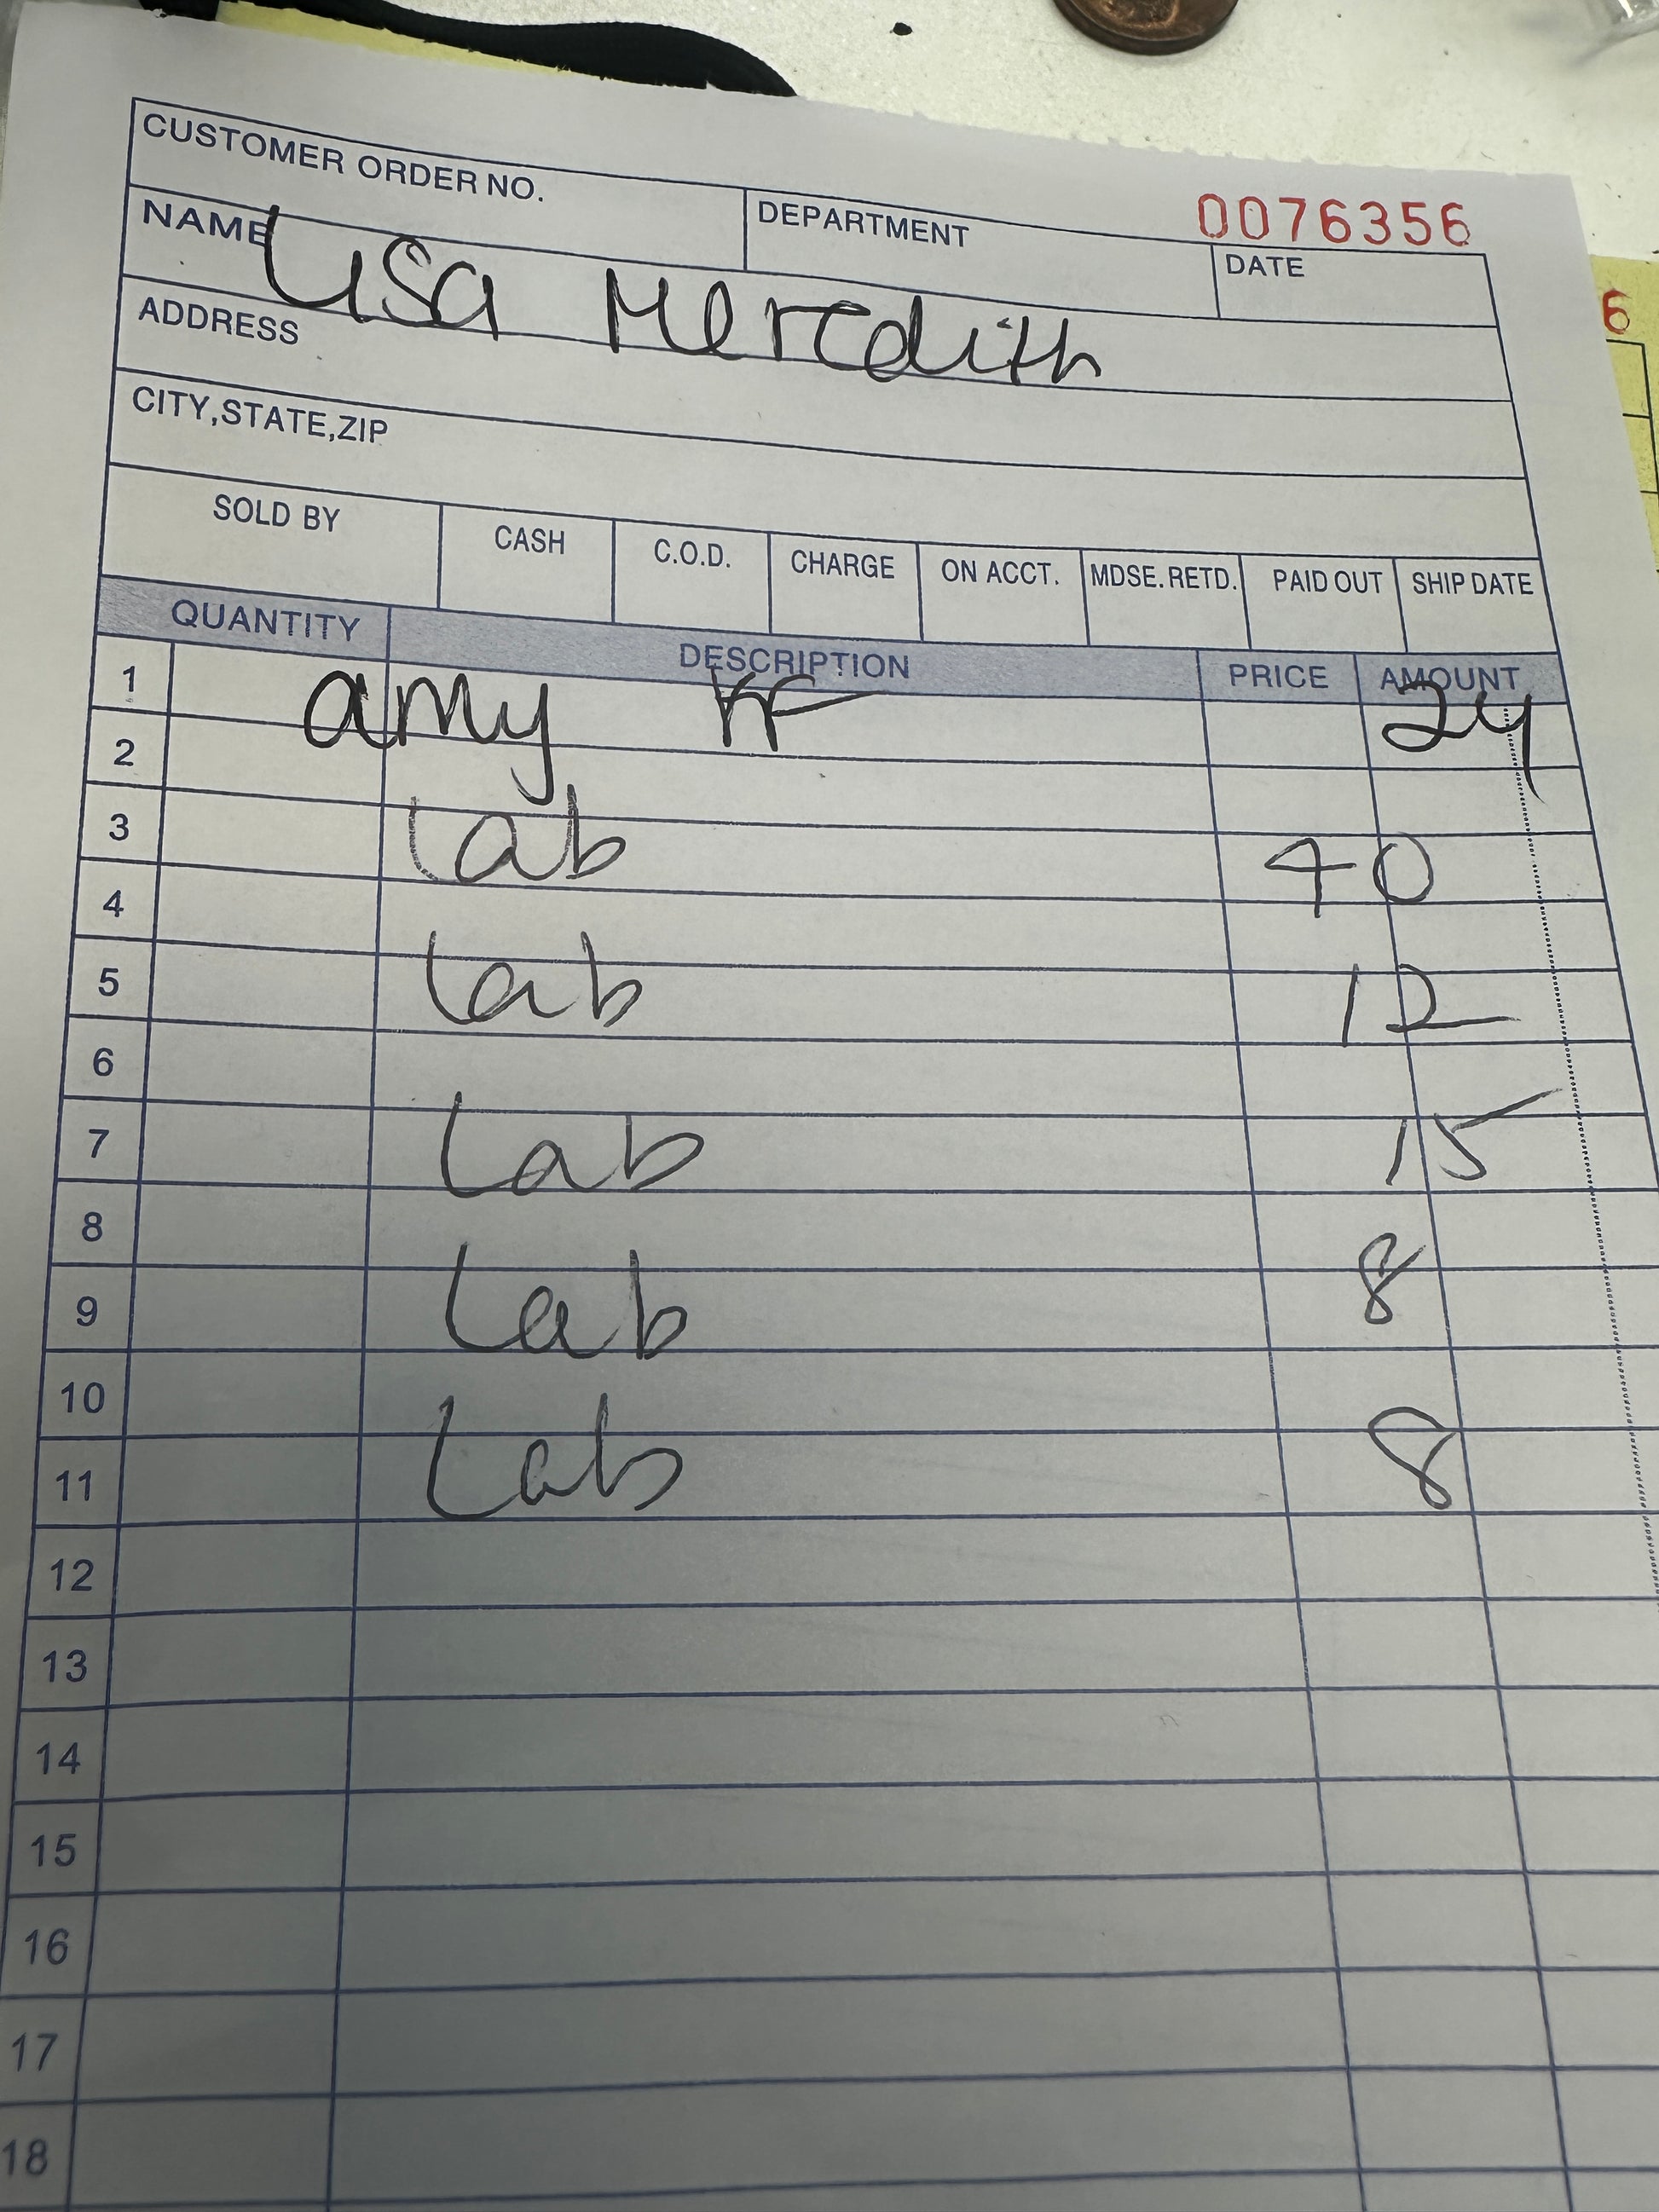 CUSTOMER ORDER NO. DEPARTMENT 0076356
DATE
NAME Lisa Meredith
ADDRESS
6
CITY,STATE,ZIP
SOLD BY CASH C.O.D. CHARGE ON ACCT. MDSE. RETD. PAID OUT SHIP DATE
QUANTITY DESCRIPTION PRICE AMOUNT
1 amy 24
2
3 Lab 40
4
5 Lab 12
6
7 Lab 15
8
9 Lab 8
10
11 Lab 8
12
13
14
15
16
17
18